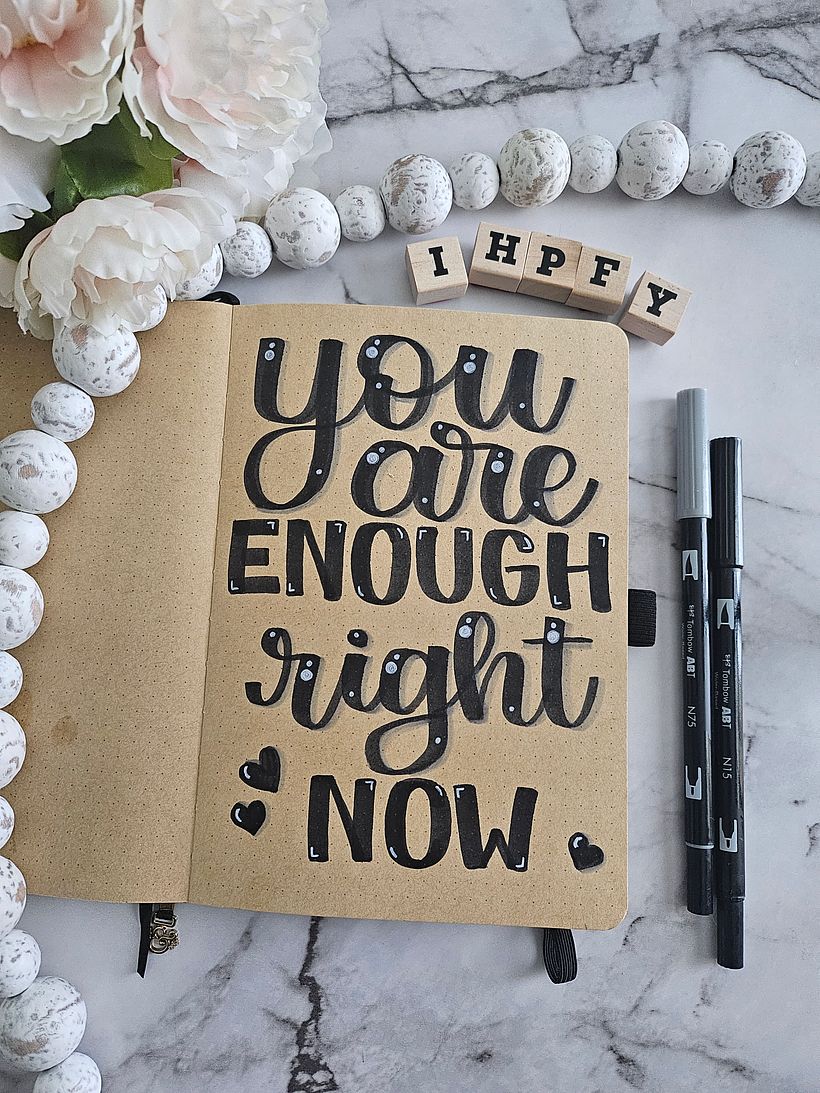 I HPFY
you
are
ENOUGH
right
NOW
Tombow ABT N75
Tombow ABT N15